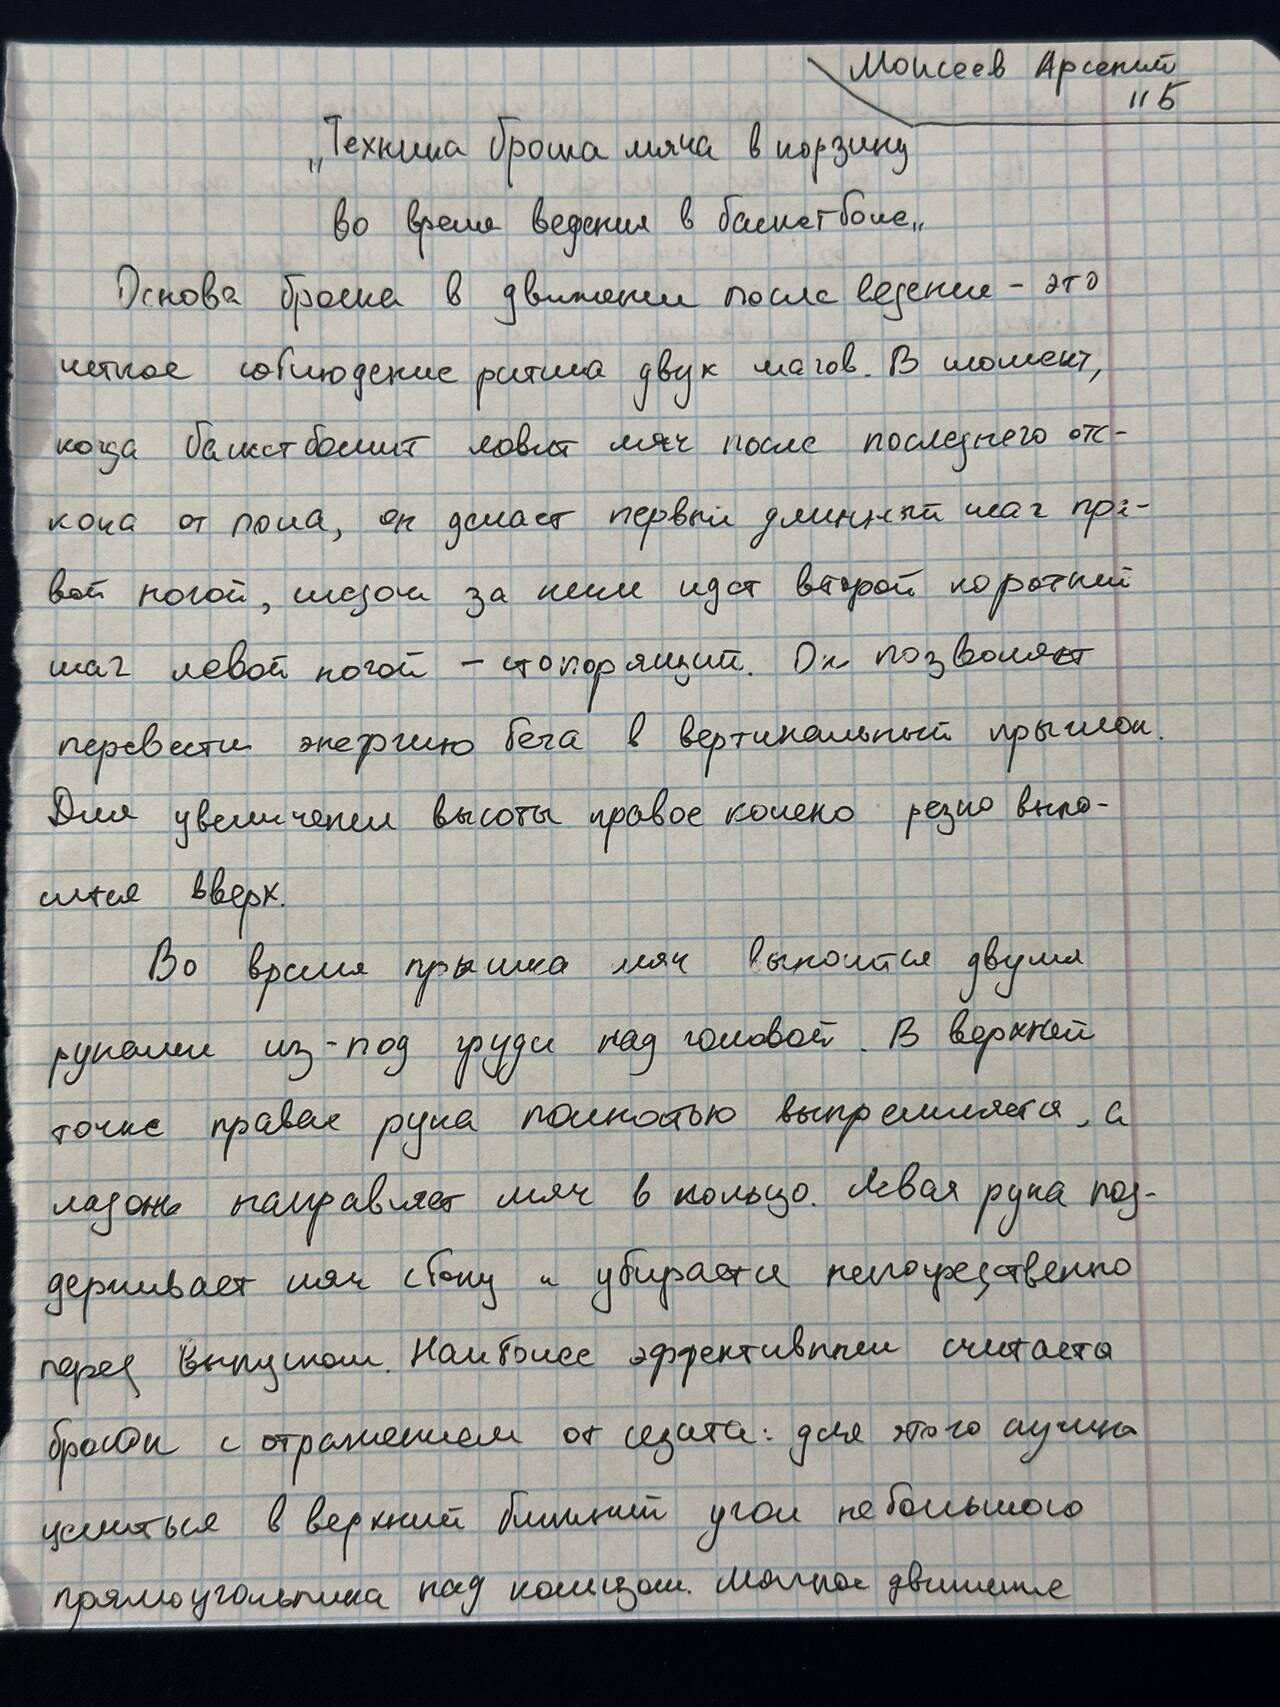 Моисеев Арсений
11Б
„Техника броска мяча в корзину
во время ведения в баскетболе„
Основа броска в движении после ведение – это
четкое соблюдение ритма двух шагов. В момент,
когда баскетболист ловит мяч после последнего отс-
кока от пола, он делает первый длинный шаг пра-
вой ногой, следом за ним идет второй короткий
шаг левой ногой – стопорящий. Он позволяет
перевести энергию бега в вертикальный прыжок.
Для увеличении высоты правое колено резко выно-
сится вверх.
Во время прыжка мяч выносится двумя
руками из-под груди над головой. В верхней
точке правая рука полностью выпрямляется, а
ладонь направляет мяч в кольцо. Левая рука под-
держивает мяч сбоку и убирается непосредственно
перед выпуском. Наиболее эффективным считается
бросок с отражением от щита: для этого нужно
целиться в верхний ближний угол небольшого
прямоугольника над кольцом. Мягкое движение